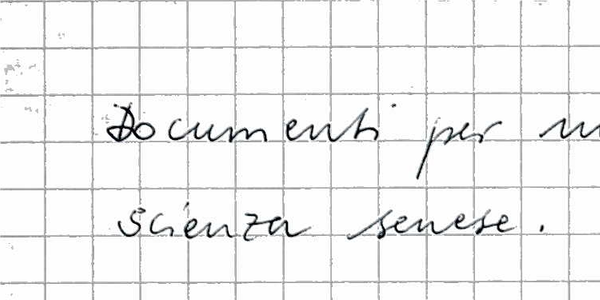 Documenti per
scienza senese.